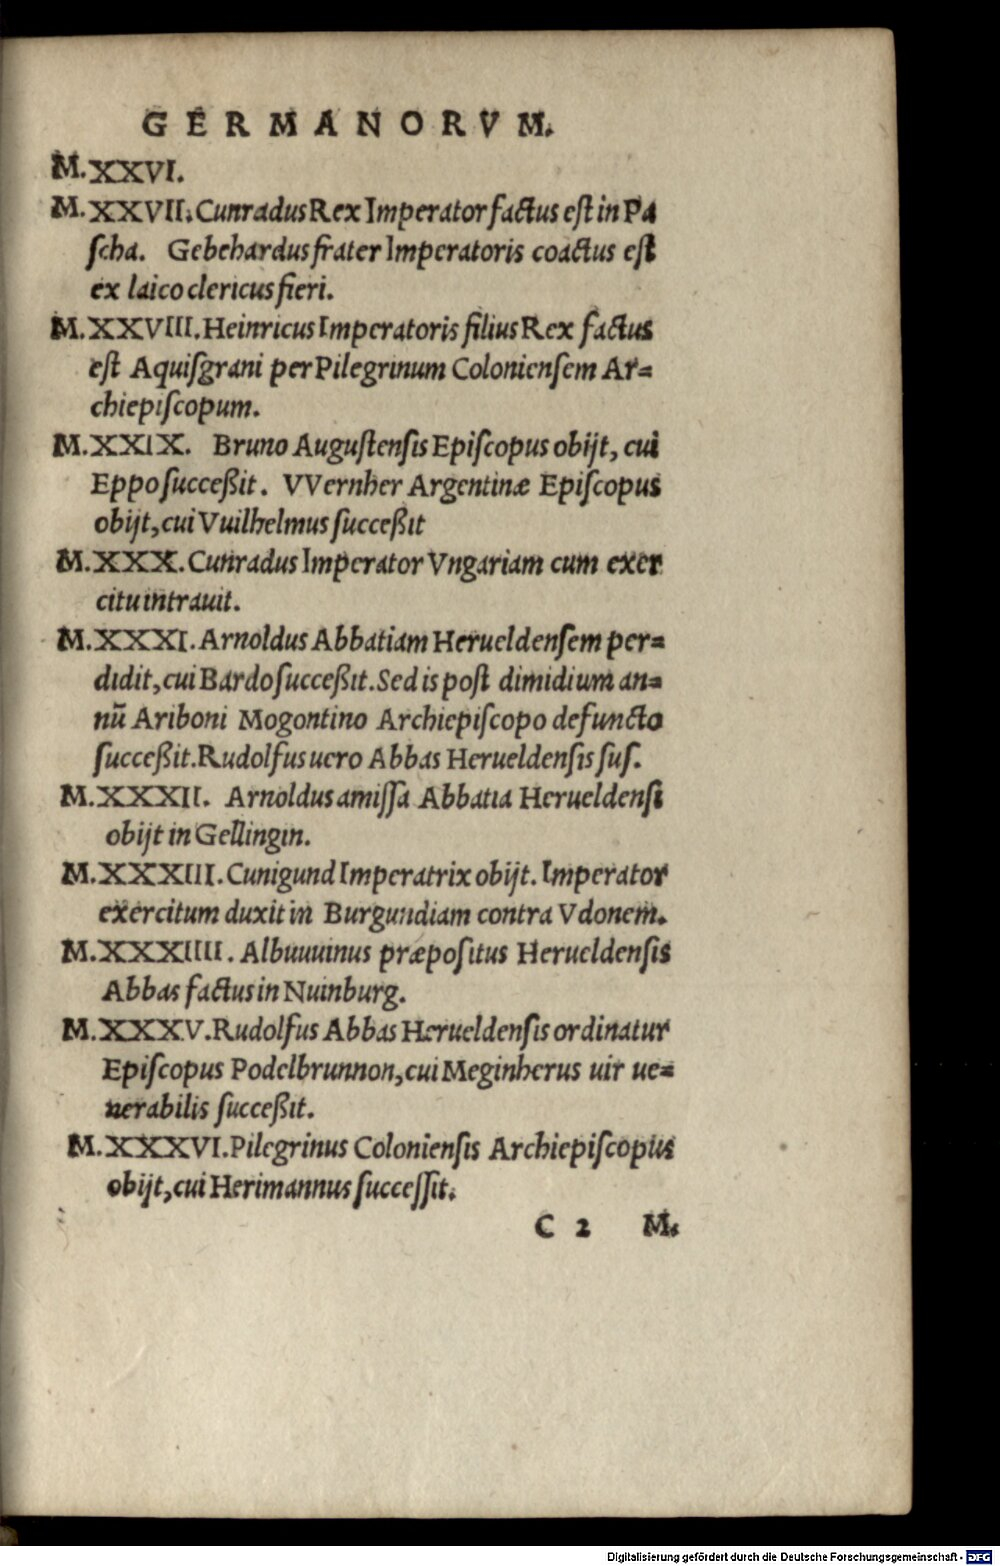 GERMANORVM.
M.XXVI.
M.XXVII. Cunradus Rex Imperator factus est in Pa
scha. Gebehardus frater Imperatoris coactus est
ex laico clericus fieri.
M.XXVIII. Heinricus Imperatoris filius Rex factus
est Aquisgrani per Pilegrinum Coloniensem Ar=
chiepiscopum.
M.XXIX. Bruno Augustensis Episcopus obijt, cui
Eppo succeßit. VVernher Argentinæ Episcopus
obijt, cui Vuilhelmus succeßit
M.XXX. Cunradus Imperator Vngariam cum exer
citu intrauit.
M.XXXI. Arnoldus Abbatiam Herueldensem per=
didit, cui Bardo succeßit. Sed is post dimidium an=
nũ Ariboni Mogontino Archiepiscopo defuncto
succeßit. Rudolfus uero Abbas Herueldensis sus.
M.XXXII. Arnoldus amissa Abbatia Herueldensi
obijt in Gellingin.
M.XXXIII. Cunigund Imperatrix obijt. Imperator
exercitum duxit in Burgundiam contra Vdonem.
M.XXXIIII. Albuuuinus præpositus Herueldensis
Abbas factus in Nuinburg.
M.XXXV. Rudolfus Abbas Herueldensis ordinatur
Episcopus Podelbrunnon, cui Meginherus uir ue=
nerabilis succeßit.
M.XXXVI. Pilegrinus Coloniensis Archiepiscopus
obijt, cui Herimannus successit.
C 2 M.
Digitalisierung gefördert durch die Deutsche Forschungsgemeinschaft - DFG